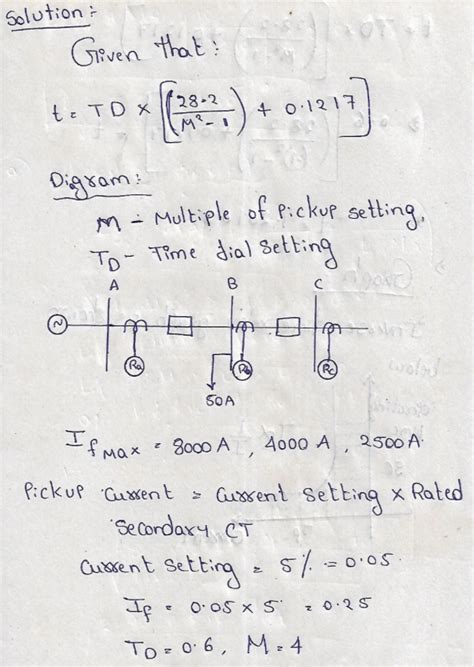 Solution :-
Given that :
t = TD × [(28.2 / M² - 1) + 0.1217]
Digram :-
M - Multiple of Pickup setting,
TD - Time dial setting
A B C
~
Ra Rb Rc
50A
If Max = 8000 A, 4000 A, 2500 A
Pickup Current = Current Setting × Rated
Secondary CT
Current Setting = 5% = 0.05
If = 0.05 × 5 = 0.25
TD = 0.6, M = 4